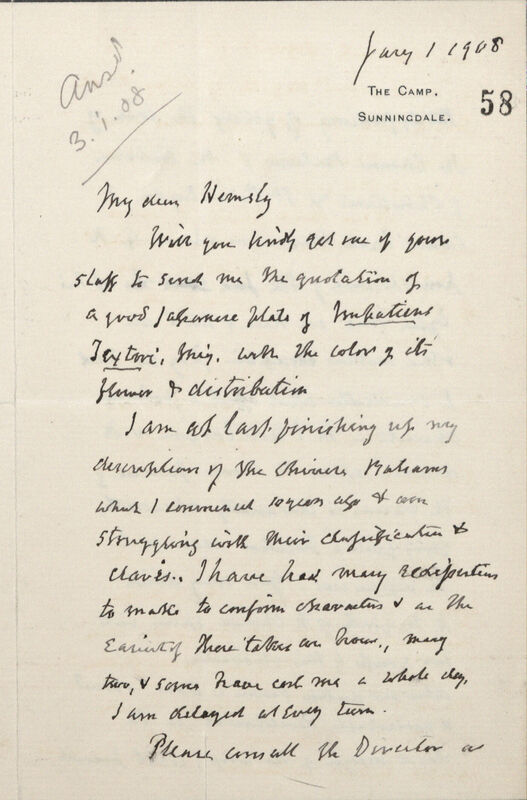 Jany 1 1908
THE CAMP,
SUNNINGDALE.
58
Ansd
3.1.08.
My dear Hemsly
Will you kindly get one of your
staff to send me the quotation of
a good Japanese plate of Impatiens
Textori, Miq. with the color of its
flower & distribution
I am at last finishing up my
description of the Chinese Balsams
which I commenced 10 years ago & am
struggling with their classification &
clavis.. I have had many redissections
to make to conform characters & as the
easiest of these takes an hour, many
two, & some have cost me a whole day,
I am delayed at every turn.
Please consult the Director as